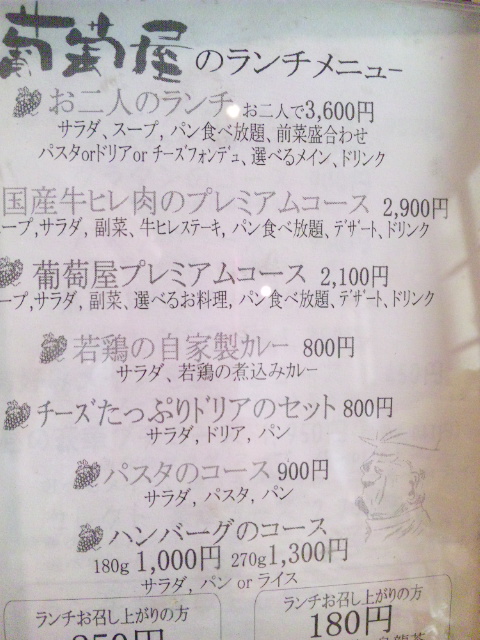 葡萄屋のランチメニュー
お二人のランチ お二人で3,600円
サラダ、スープ, パン食べ放題、前菜盛合わせ
パスタorドリアor チーズフォンデュ、選べるメイン、ドリンク
国産牛ヒレ肉のプレミアムコース 2,900円
ープ,サラダ, 副菜、牛ヒレステーキ, パン食べ放題、デザート、ドリンク
葡萄屋プレミアムコース 2,100円
ープ,サラダ, 副菜、選べるお料理, パン食べ放題、デザート、ドリンク
若鶏の自家製カレー 800円
サラダ、若鶏の煮込みカレー
チーズたっぷりドリアのセット 800円
サラダ, ドリア, パン
パスタのコース 900円
サラダ, パスタ, パン
ハンバーグのコース
180g 1,000円 270g 1,300円
サラダ, パン or ライス
ランチお召し上がりの方
ランチお召し上がりの方
180円